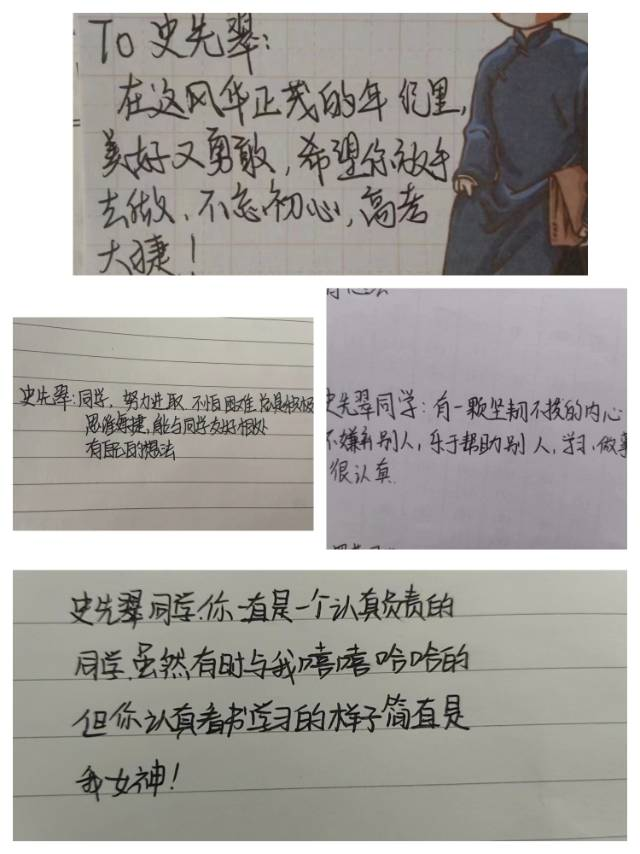 To 史先翠:
在这风华正茂的年纪里,
美好又勇敢,希望你放手
去做、不忘初心,高考
大捷!
史先翠:同学、努力进取 不怕困难 总是积极
思维敏捷,能与同学友好相处
有自己的想法
史先翠同学:有一颗坚韧不拔的内心
不嫌弃别人,乐于帮助别人,学习、做事
很认真
史先翠同学.你一直是一个认真负责的
同学.虽然有时与我嘻嘻哈哈的
但你认真看书学习的样子简直是
我女神!